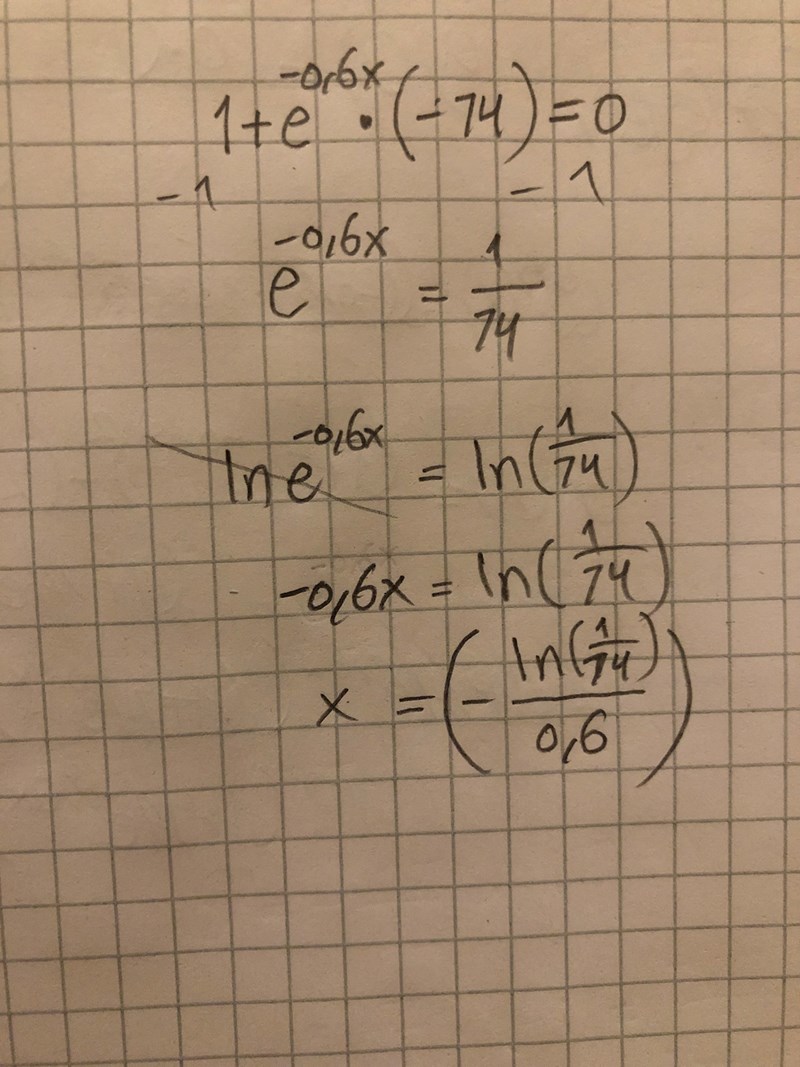 1+e^(-0,6x) · (-74) = 0
-1 - 1
e^(-0,6x) = 1/74
ln e^(-0,6x) = ln(1/74)
-0,6x = ln(1/74)
x = (- ln(1/74)/0,6)